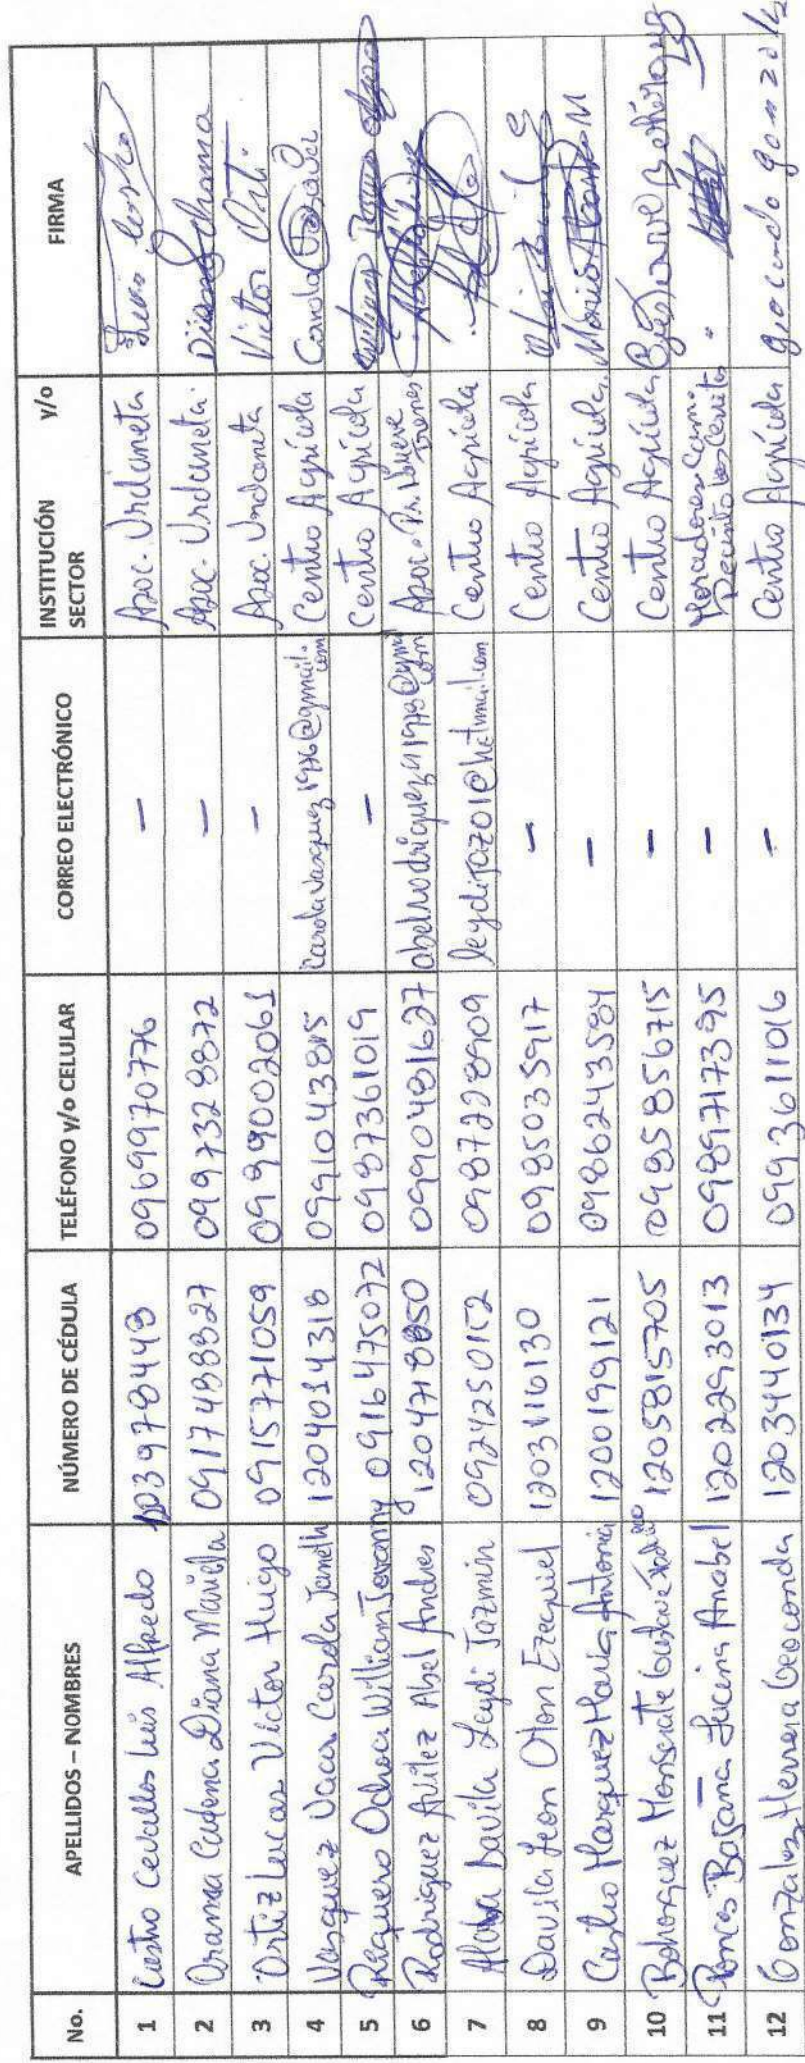 No. APELLIDOS – NOMBRES NÚMERO DE CÉDULA TELÉFONO y/o CELULAR CORREO ELECTRÓNICO INSTITUCIÓN y/o SECTOR FIRMA
1 Castro Cevallos Luis Alfredo 1203978449 0969970776 – Asoc. Urdaneta Luis Castro
2 Cadena Diana Mariela 0917488827 0997328872 – Asoc. Urdaneta. Diana
3 Ortiz Lucas Victor Hugo 0915771059 0999002061 – Asoc. Urdaneta Victor Orti.
4 Vasquez Vaca Carola Janeth 1204014318 0991043815 carolavasquez1976@gmail.com Centro Agrícola Carola
5 Ochoa William 0916475072 0987361019 – Centro Agrícola
6 Rodriguez Avilez Abel Andres 0990481627 Asoc.
7 Davila Leydi Jazmin 0924250152 0987228909 leydijazo1@hotmail.com Centro Agrícola
8 Davila Leon Oton Ezequiel 1203116130 0985035917 – Centro Agrícola
9 Castro Marquez Maria Antonia 1200199121 0986243584 – Centro Agrícola,
10 Bohorquez Monserrate 1205815705 0985856715 – Centro Agrícola
11 Anabel 1202293013 0989717395 – Moradores Recinto los Cerritos
12 Gonzalez Herrera Geoconda 1203440134 0993611016 – Centro Agrícola geoconda gonzalez